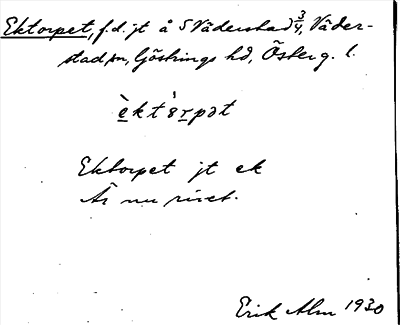 Ektorpet, f.d. jt å S Väderstad 3/4, Väder-
stad sn, Göstrings hd, Österg. l.
èktórpət
Ektorpet jt ek
Är nu rivet.
Erik Alm 1930